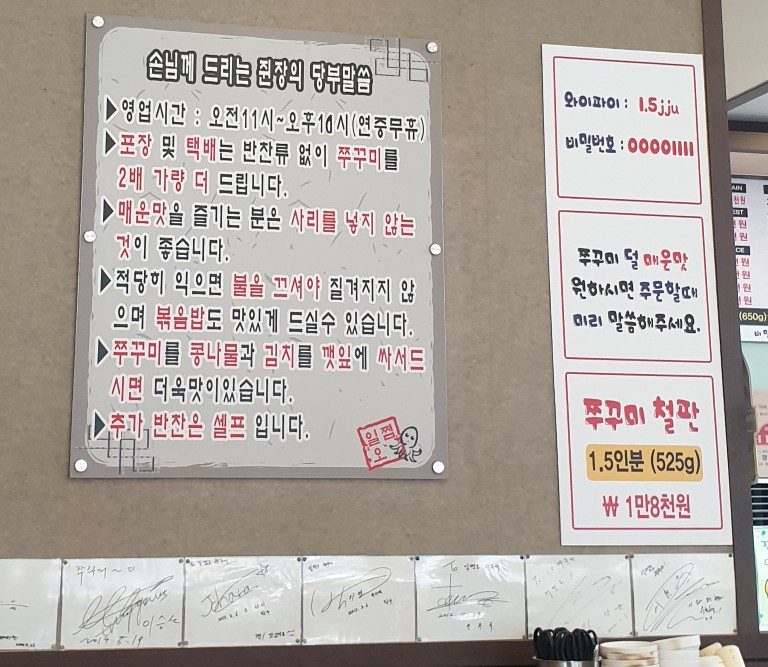 손님께 드리는 쥔장의 당부말씀
▶영업시간 : 오전11시~오후10시(연중무휴)
▶포장 및 택배는 반찬류 없이 쭈꾸미를
2배 가량 더 드립니다.
▶매운맛을 즐기는 분은 사리를 넣지 않는
것이 좋습니다.
▶적당히 익으면 불을 끄셔야 질겨지지 않
으며 볶음밥도 맛있게 드실수 있습니다.
▶쭈꾸미를 콩나물과 김치를 깻잎에 싸서드
시면 더욱맛이있습니다.
▶추가 반찬은 셀프 입니다.
일쩜
오
와이파이 : 1.5jju
비밀번호 : 00001111
쭈꾸미 덜 매운맛
원하시면 주문할때
미리 말씀해주세요.
쭈꾸미 철판
1.5인분 (525g)
₩ 1만8천원
(650g)